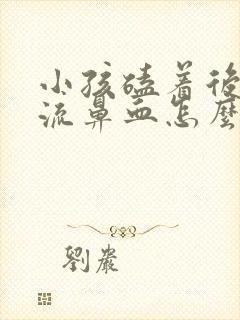 小孩磕着後
流鼻血怎麼
劉嚴